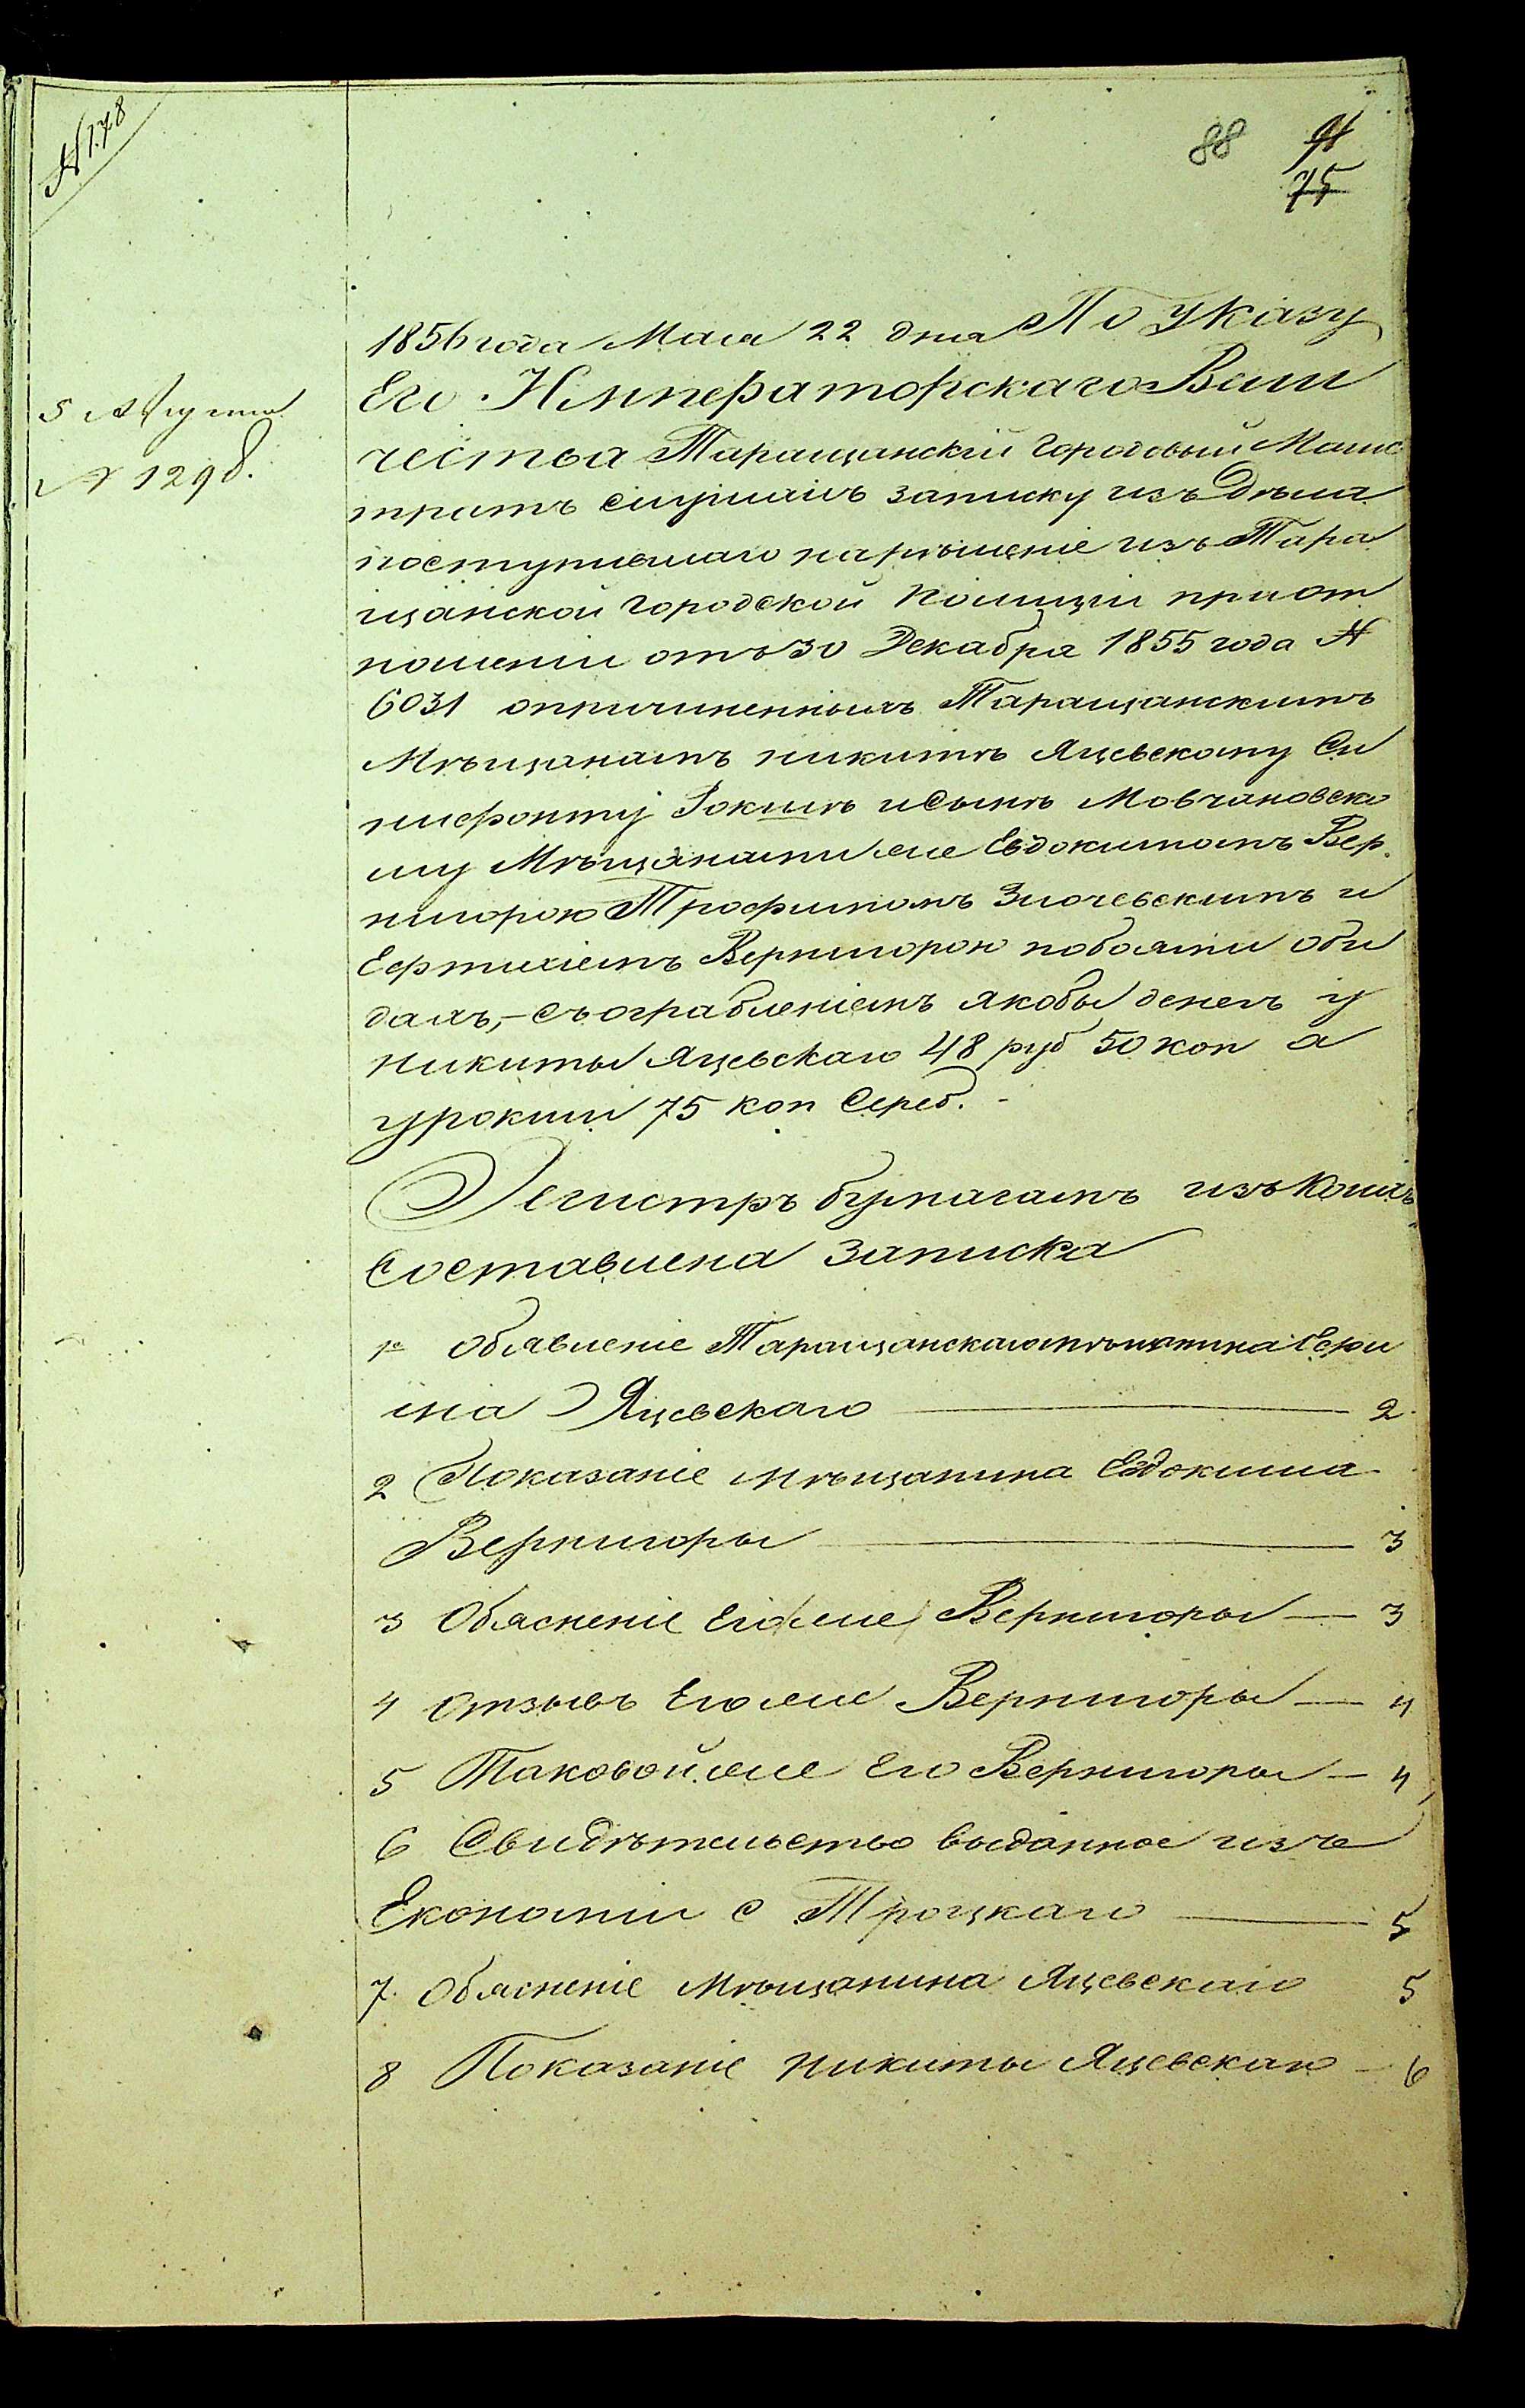 № 178
88 91
75
5 Августа
№ 1298.
1856 года Мая 22 дня По Указу
Его Императорскаго Вели
чества Таращанскій Городовый Магис
тратъ слушалъ записку изъ Дѣла
поступившаго нарѣшеніе изъ Тара
щанской Городской Полиціи приот
ношеніи отъ 30 Декабря 1855 года №
6031 опричиненныхъ Таращанскимъ
Мѣщанамъ Никитѣ Яцевскому
Рокишѣ и Мовчановско
му Мѣщанами же Евдокимомъ Вер
нигорою Трофимомъ Злочевскимъ и
Ефтихіемъ Вернигорою побоями оби
дахъ,- съограбленіемъ якобы денегъ у
Никиты Яцевскаго 48 руб 50 коп а
урокиши 75 коп Сереб. -
Регистръ бумагамъ изъ Коихъ
Составлена Записка
1е Обявленіе Таращанскаго мѣщанина
Яцевскаго 2
2 Показаніе мѣщанина Евдокима
Вернигоры 3
3 Обясненіе Егоже Вернигоры — 3
4 Отзывъ Егоже Вернигоры — 4
5 Таковойже Его Вернигоры — 4
6 Свидѣтельство выданное изъ
Економіи с Троцкаго 5
7. Обясненіе Мѣщанина Яцевскаго 5
8 Показаніе Никиты Яцевскаго — 6